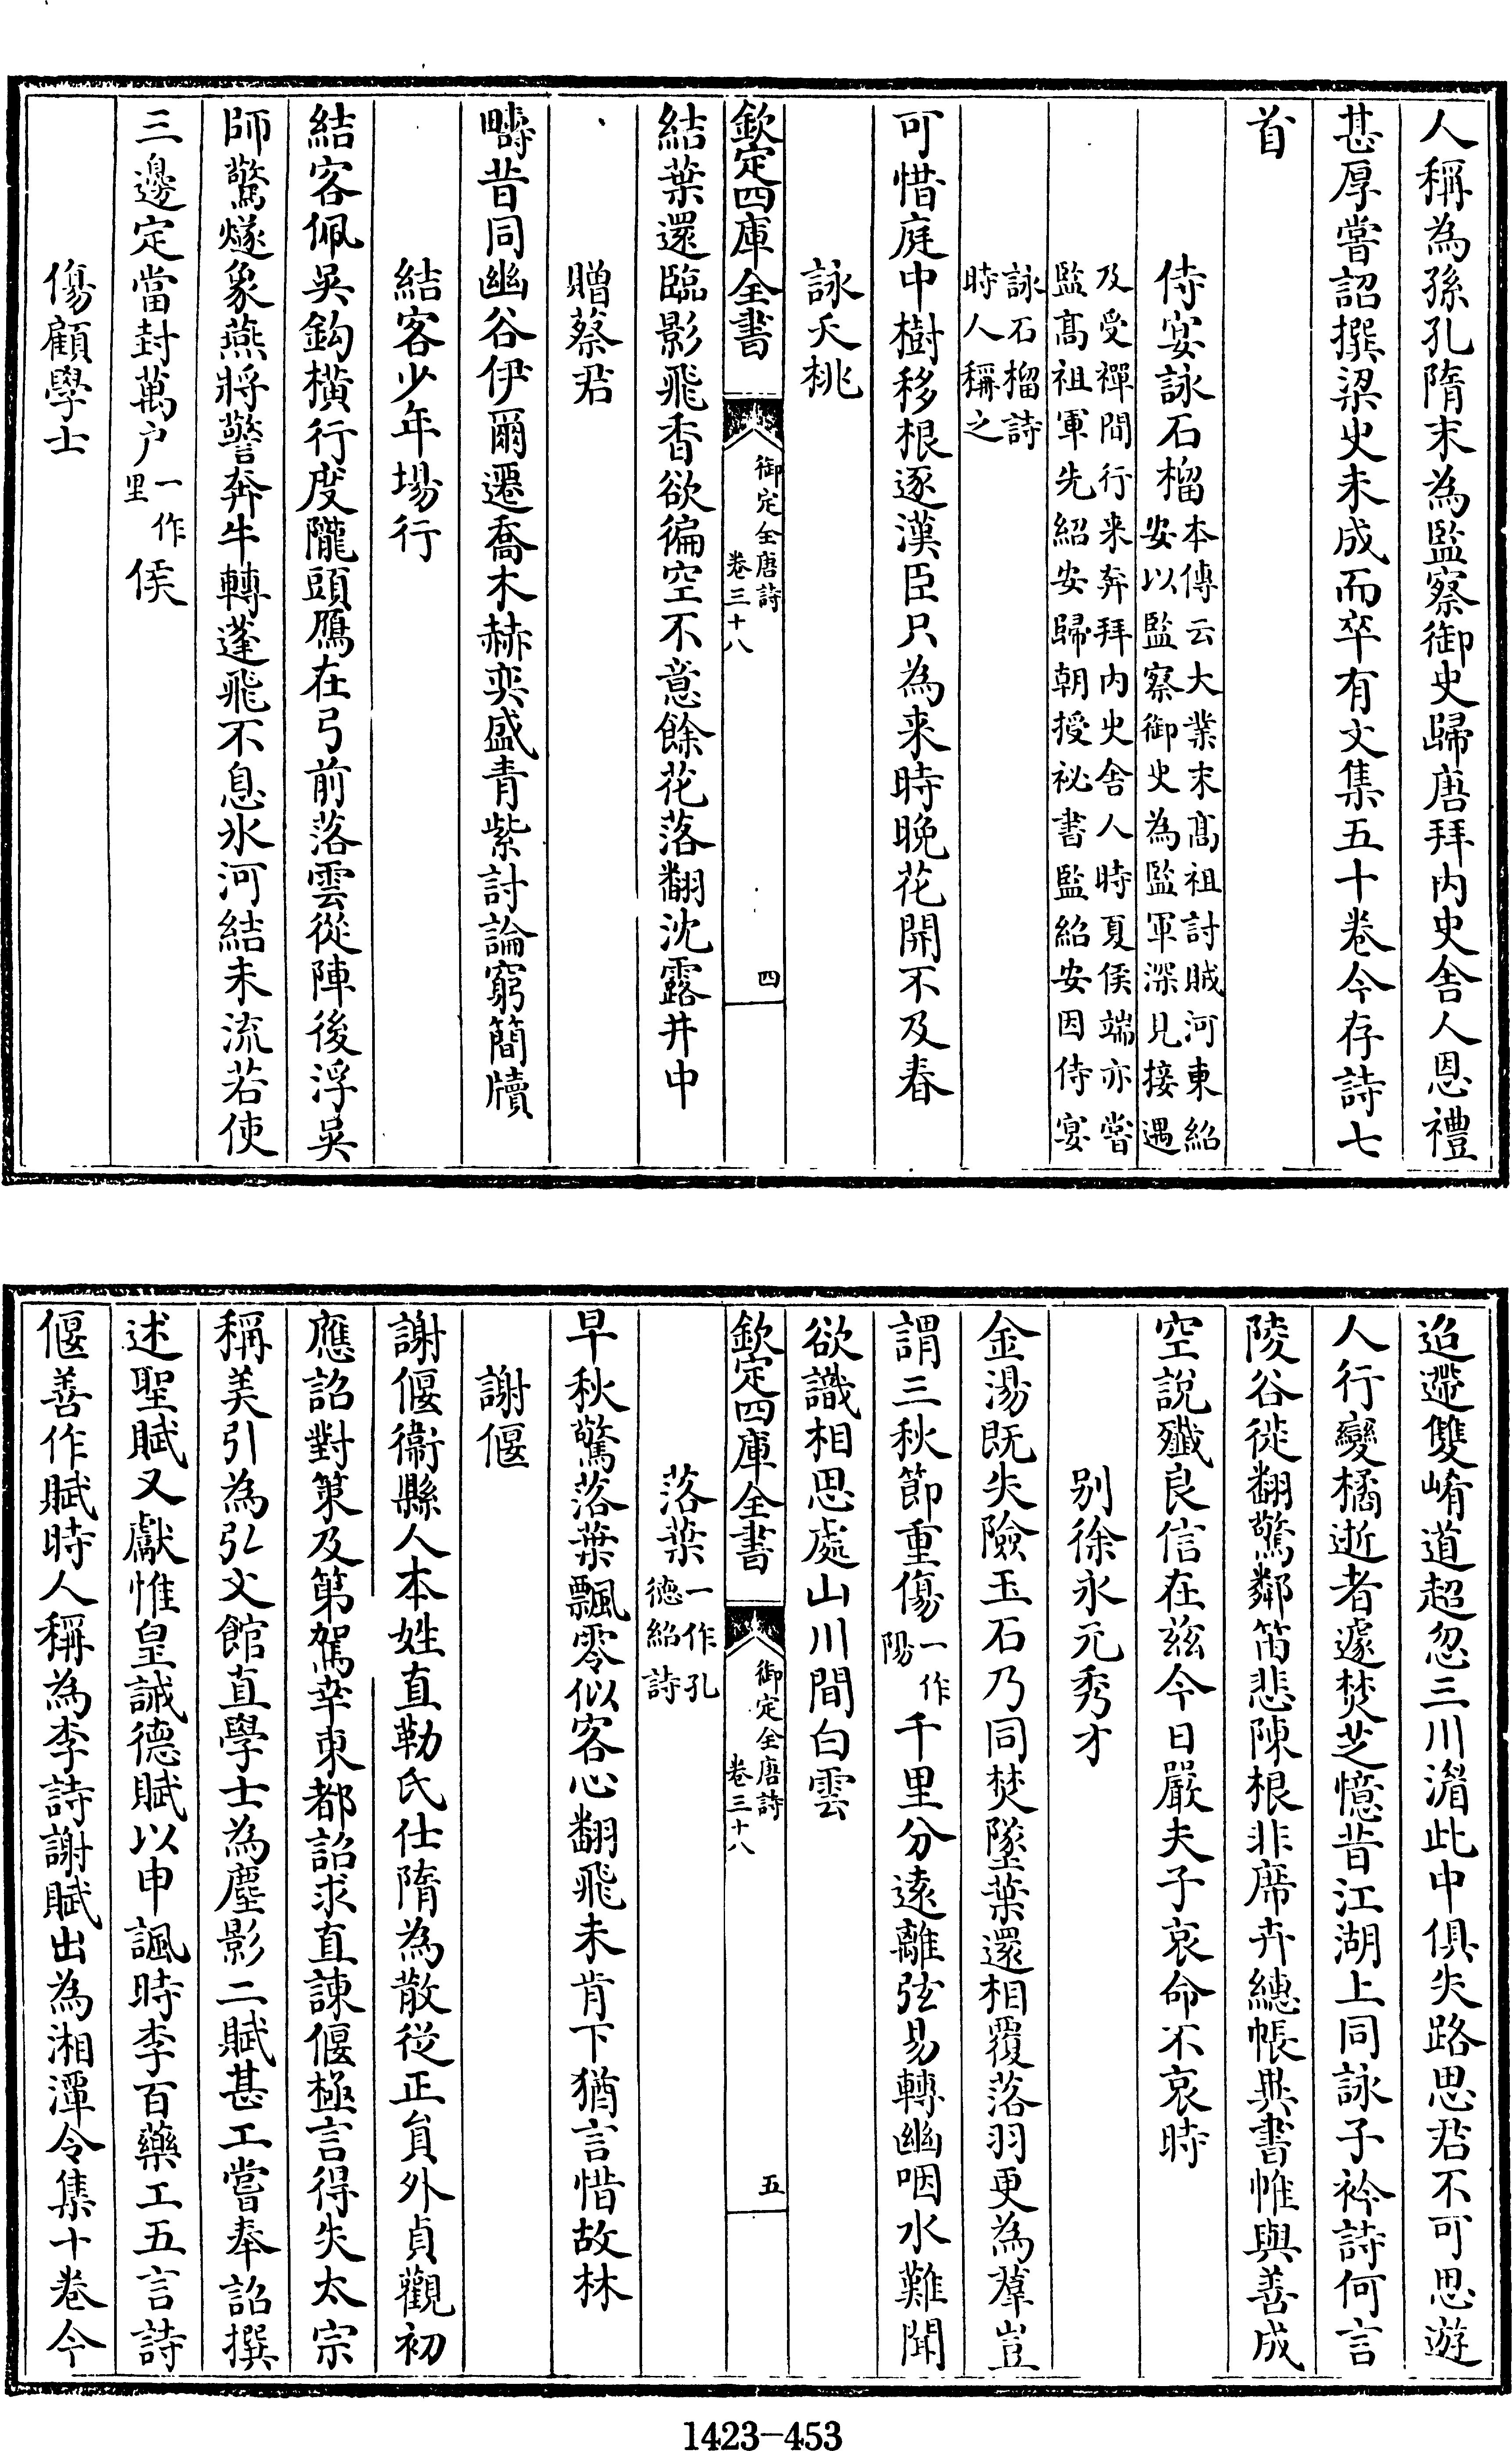 人稱為孫孔隋末為監察御史歸唐拜內史舍人恩禮
甚厚嘗詔撰梁史未成而卒有文集五十卷今存詩七
首
侍宴詠石榴
本傳云大業末高祖討賊河東紹
安以監察御史為監軍深見接遇
及受禪間行来奔拜內史舍人時夏侯端亦嘗
監髙祖軍先紹安歸朝授祕書監紹安因侍宴
詠石榴詩
時人稱之
可惜庭中樹移根逐漢臣只為来時晚花開不及春
詠夭桃
欽定四庫全書
御定全唐詩
卷三十八
四
結葉還臨影飛香欲徧空不意餘花落翻沈露井中
贈蔡君
疇昔同幽谷伊爾遷喬木赫奕盛青紫討論窮簡牘
結客少年場行
結客佩吳鈎橫行度隴頭鴈在弓前落雲從陣後浮吳
師驚燧象燕將警奔牛轉蓬飛不息氷河結未流若使
三邊定當封萬户
一作
里
侯
傷顧學士
迢遰雙崤道超忽三川湄此中俱失路思君不可思遊
人行變橘逝者遽焚芝憶昔江湖上同詠子衿詩何言
陵谷徙翻驚鄰笛悲陳根非席卉繐帳異書帷與善成
空說殲良信在兹今日嚴夫子哀命不哀時
別徐永元秀才
金湯既失險玉石乃同焚墜葉還相覆落羽更為羣豈
謂三秋節重傷
一作
陽
千里分遠離弦易轉幽咽水難聞
欲識相思處山川間白雲
欽定四庫全書
御定全唐詩
卷三十八
五
落葉
一作孔
德紹詩
早秋驚落葉飄零似客心翻飛未肯下猶言惜故林
謝偃
謝偃衞縣人本姓直勒氏仕隋為散從正員外貞觀初
應詔對策及第駕幸東都詔求直諫偃極言得失太宗
稱美引為弘文館直學士為塵影二賦甚工嘗奉詔撰
述聖賦又獻惟皇誡德賦以申諷時李百藥工五言詩
偃善作賦時人稱為李詩謝賦出為湘潭令集十卷今
1423-453